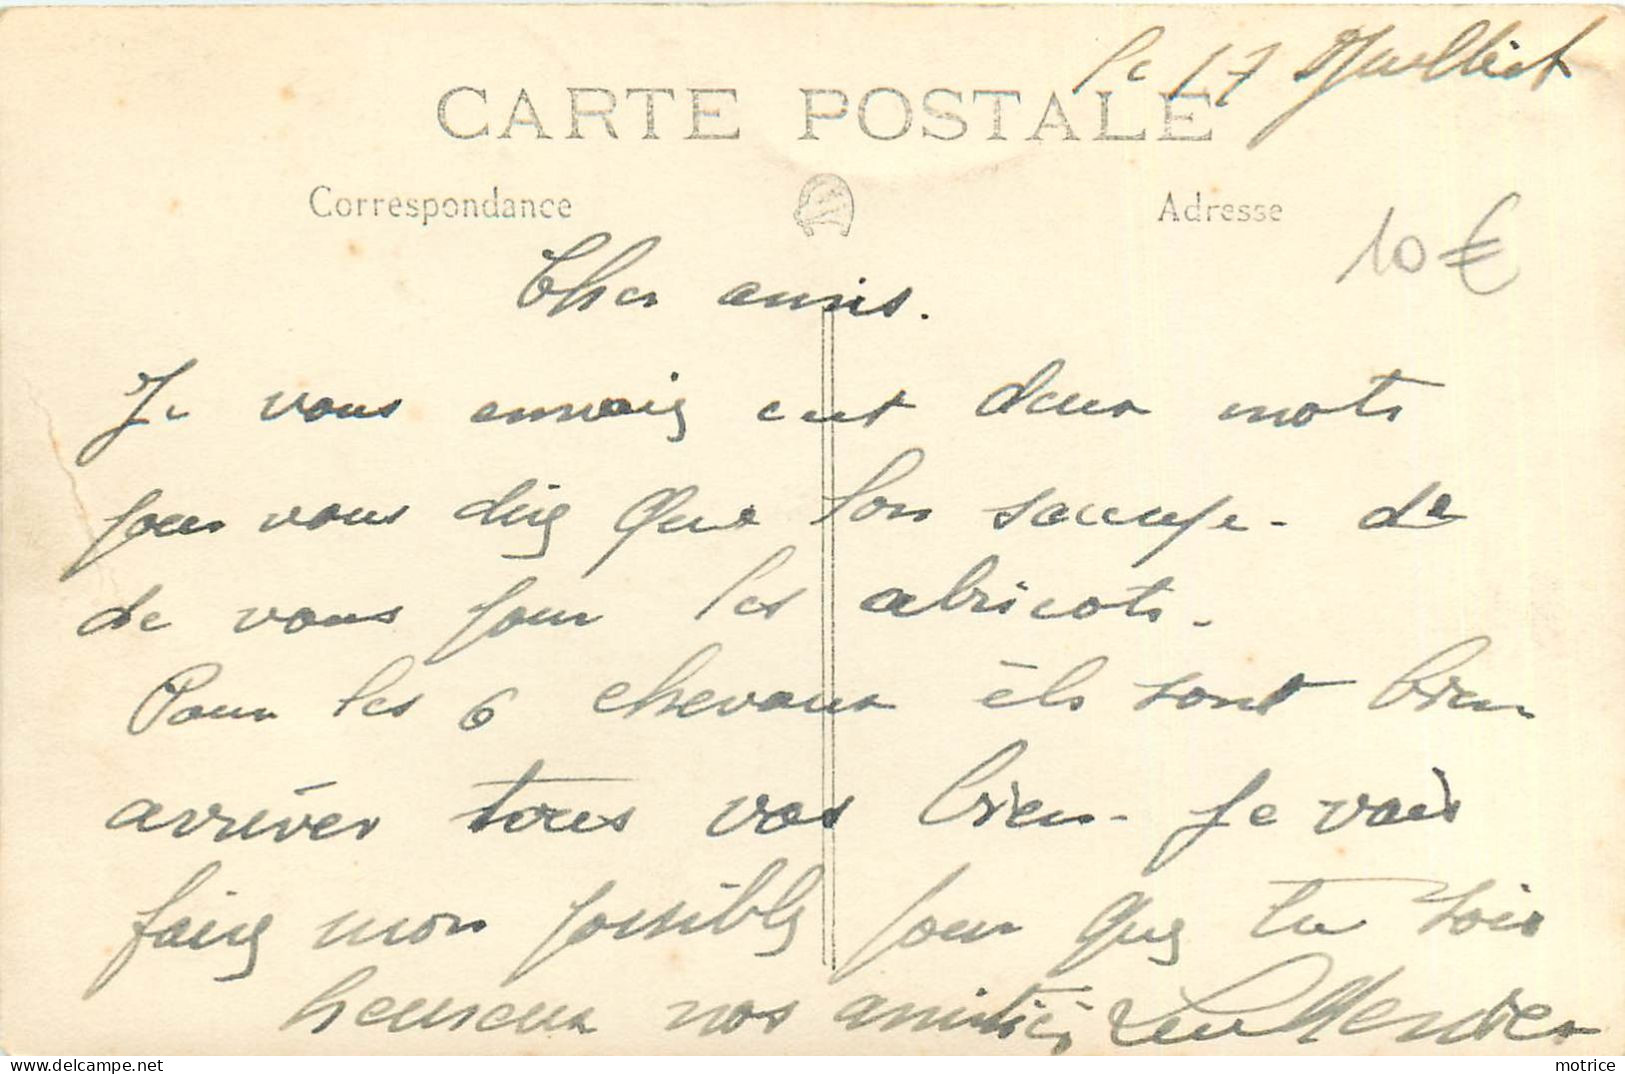 le 17 Juilliet
CARTE POSTALE
Correspondance
Adresse
10 €
Cher amis.
Je vous envoie cet deux mots
pour vous dire que l'on s'occupe. de
de vous pour les abricots.
Pour les 6 chevaux ils sont bien
arriver tous vas bien. Je vais
faire mon possible pour que tu sois
heureux nos amitiés
motrice